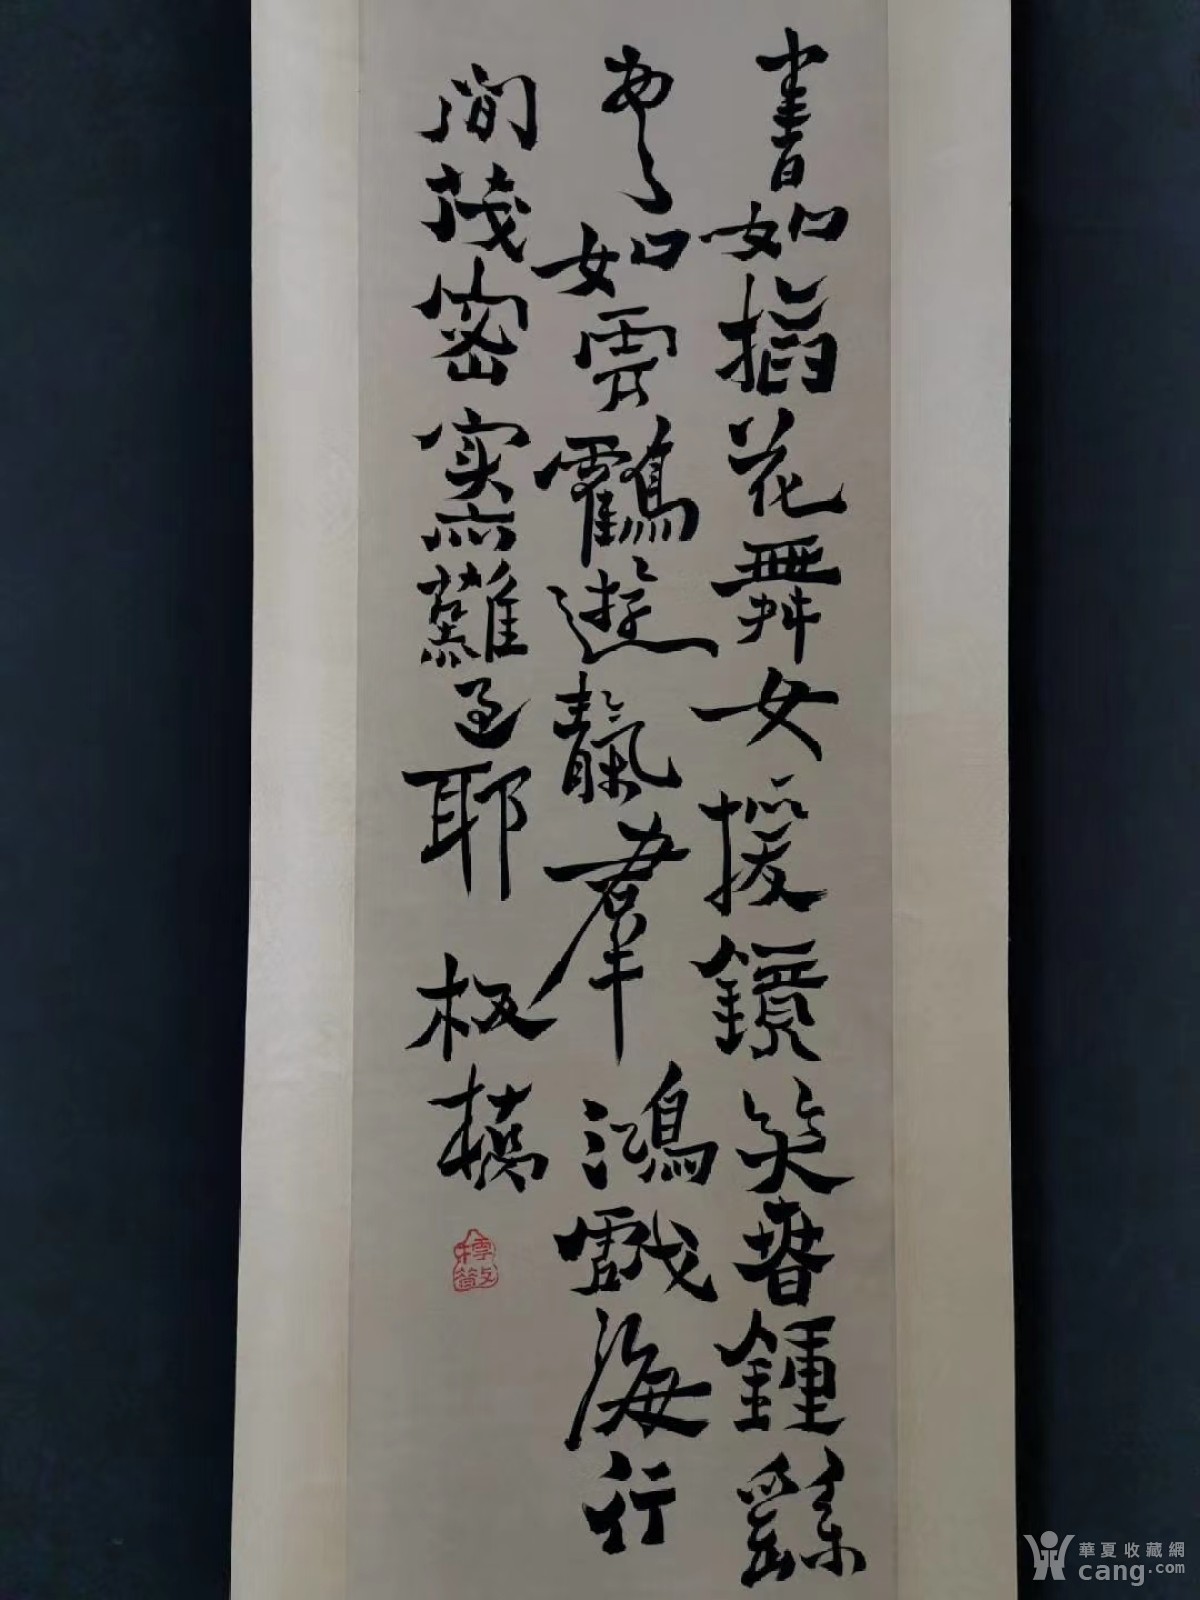 書如插花舞女援鏡笑春鍾繇
書如雲鸖遊靝羣鴻戲海行
間茂密实亦難過耶 板橋
樗散
華夏收藏網
cang.com